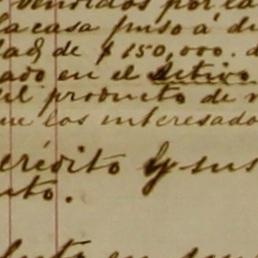 vendidos por la
la casa puso á di
dad de $150,000. d
ado en el activo
del producto de
que los interesado
crédito y sus
uto.